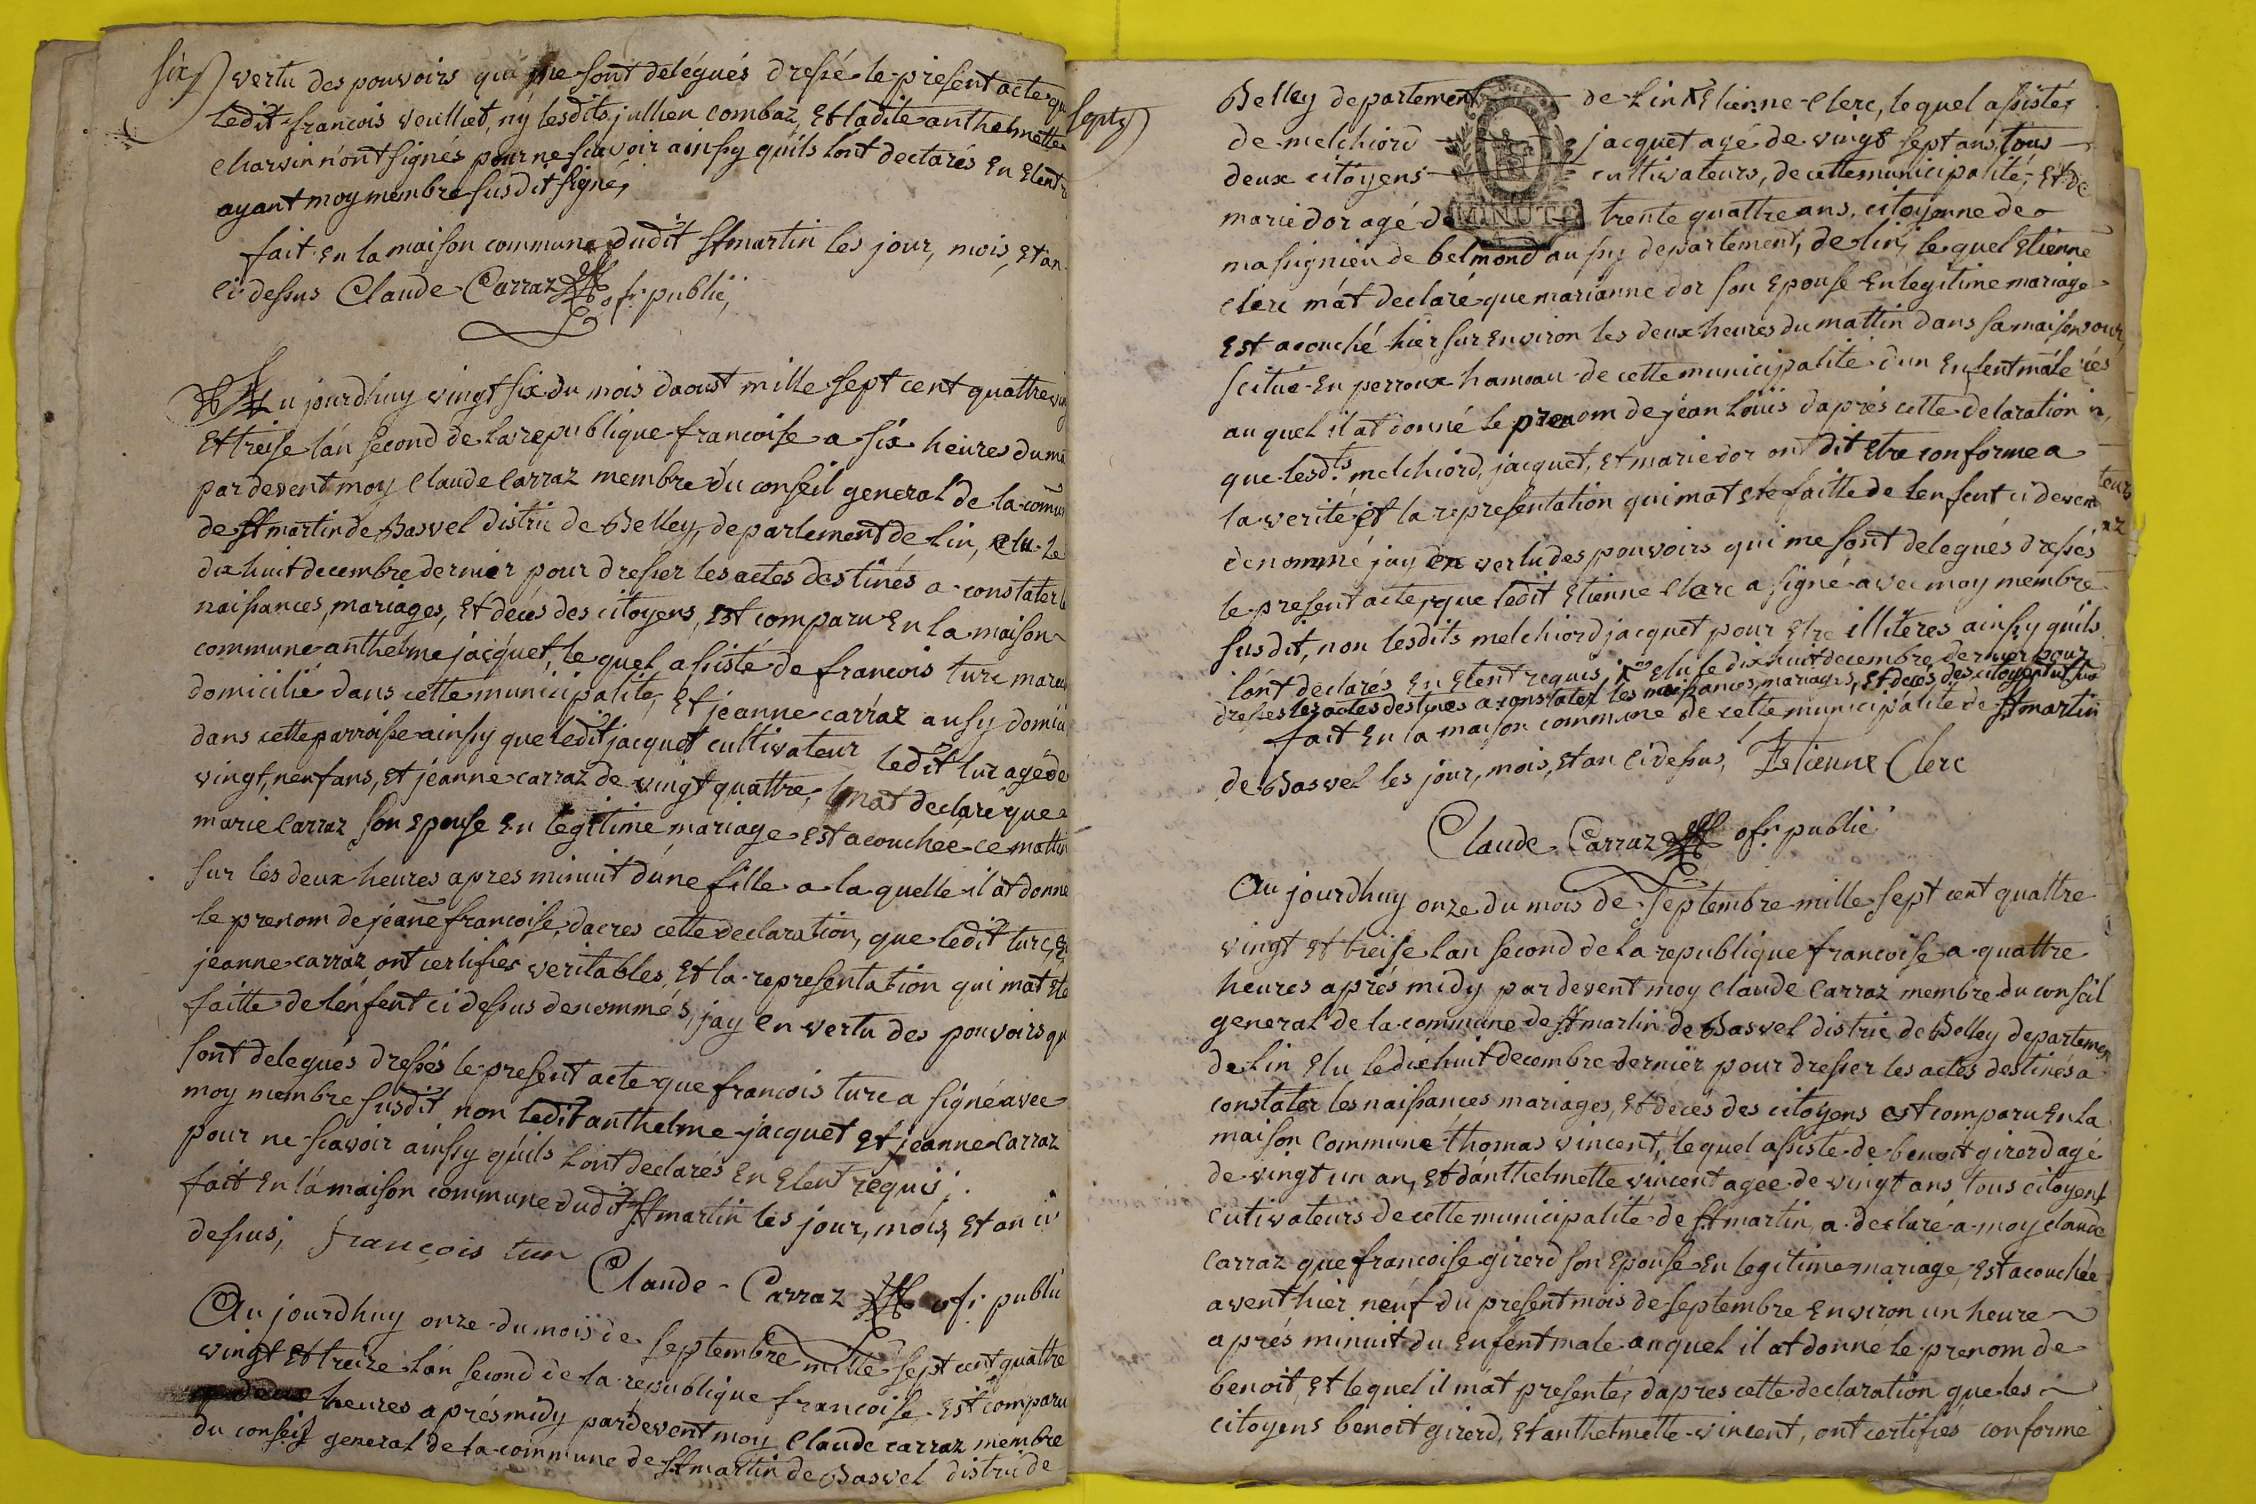 six
vertu des pouvoirs qui me sont delégués dressé le present acte que
ledit francois veuillet, ny lesdits jullien combaz, Et ladite anthelmette
charvin n'ont signés pour ne scavoir ainsy quils lont declarés En Etent
ayant moy membre susdit signé,
fait En la maison commune dudit St martin les jour, mois, Et an
ci dessus Claude Carraz of: public,
Aujourdhuy vingt six du mois daoust mille sept cent quattre ving
Et treise l'an second de la republique francoise a six heures du ma
pardevent moy Claude Carraz membre du conseil general de la comu
de St martin de Bavel distric de Belley, departement de Lin, elu le
dix huit decembre dernier pour dresser les actes destinés a constater l
naissances, mariages, Et decés des citoyens, Est comparu En la maison
commune anthelme jacquet, le quel assisté de francois turc mare
domicilié dans cette municipalité, Et jeanne carraz aussy domici
dans cette parroisse ainsy que ledit jacquet cultivateur ledit turc agé de
vingt, neuf ans, et jeanne carraz de vingt quattre, m'at declaré que
marie Carraz son Epouse En legitime mariage Est acouchée ce mattin
sur les deux heures apres minuit d'une fille a la quelle il at donné
le prenom de jéane francoise, dacres cette declaration, que ledit turc, Et
jeanne carraz ont certifiés veritables, Et la representation qui mat Ete
faitte de lenfent ci dessus denommés, jay en vertu des pouvoirs qu
sont delegués dressés le present acte que francois turc a signé avec
moy membre susdit, non ledit anthelme jacquet Et jeanne Carraz
pour ne scavoir ainsy quils lont declarés En Etent requis.
fait En la maison commune dudit St martin les jour, mois, Et an ci
dessus, françois turc
Claude Carraz of: public
Aujourdhuy onze du mois de septembre mille sept cent quattre
vingt Et treize l'an second de la republique francoise Est comparu
heures aprés midy pardevent moy Claude carraz membre
du conseil general de la commune de St martin de Bavel distric de
sept
Belley departement de Lin Etienne Clerc, le quel assisté
de melchiord jacquet agé de vingt sept ans, tous
deux citoyens cultivateurs, de cette municipalité, Et de
marie dor agé de MINUTE trente quattre ans, citoyenne de
massignieu de belmond aussy departement, de lin, le quel Etienne
clerc m'at declaré que marianne dor son Epouse En legitime mariage
Est acouché hier sur Environ les deux heures du mattin dans sa maison
scitué En perroux hamoau de cette municipalité d'un Enfent mâle
au quel il at donné le prenom de jéan Loüis daprés cette delaration
que lesdts melchiord, jacquet, Et marie dor ont dit Etre conforme a
la verité Et la representation qui mat ete faitte de lenfent ci devent
denommé jay en vertu des pouvoirs qui me sont delegués dressés
le present acte, que ledit Etienne Clerc a signé avec moy membre
susdit, non lesdits melchiord jacquet pour Etre illiteres ainsy quils
lont declarés En Etent requis, Elu le dix huit decembre dernier pour
dresser les actes destinés a constater les naissances, mariages, Et decés des citoyens
fait En la maison commune de cette municipalité de St martin
de Bavel les jour, mois, Et an ci dessus, Estienne Clerc
Claude Carraz of: public
Aujourdhuy onze du mois de Septembre mille sept cent quattre
vingt Et treise lan second de la republique francoise a quattre
heures aprés midy pardevent moy Claude Carraz membre du conseil
general de la commune de St martin de Bavel distric de Belley departemen
de Lin Elu le dix huit decembre dernier pour dresser les actes destinés a
constater les naissances mariages, Et decés des citoyens est comparu En la
maison Commune thomas vincent, le quel assisté de benoit girerd agé
de vingt un an, Et danthelmette vincent agee de vingt ans tous citoyens
cutivateurs de cette municipalité de St martin a declaré a moy claude
Carraz que francoise girerd son Epouse En legitime mariage, Est acouchée
avent hier neuf du present mois de septembre Environ un heure
aprés minuit du Enfent male auquel il at donné le prenom de
benoit, Et lequel il m'at presenté, dapres cette declaration que les
citoyens benoit girerd, Et anthelmette vincent, ont certifies conforme